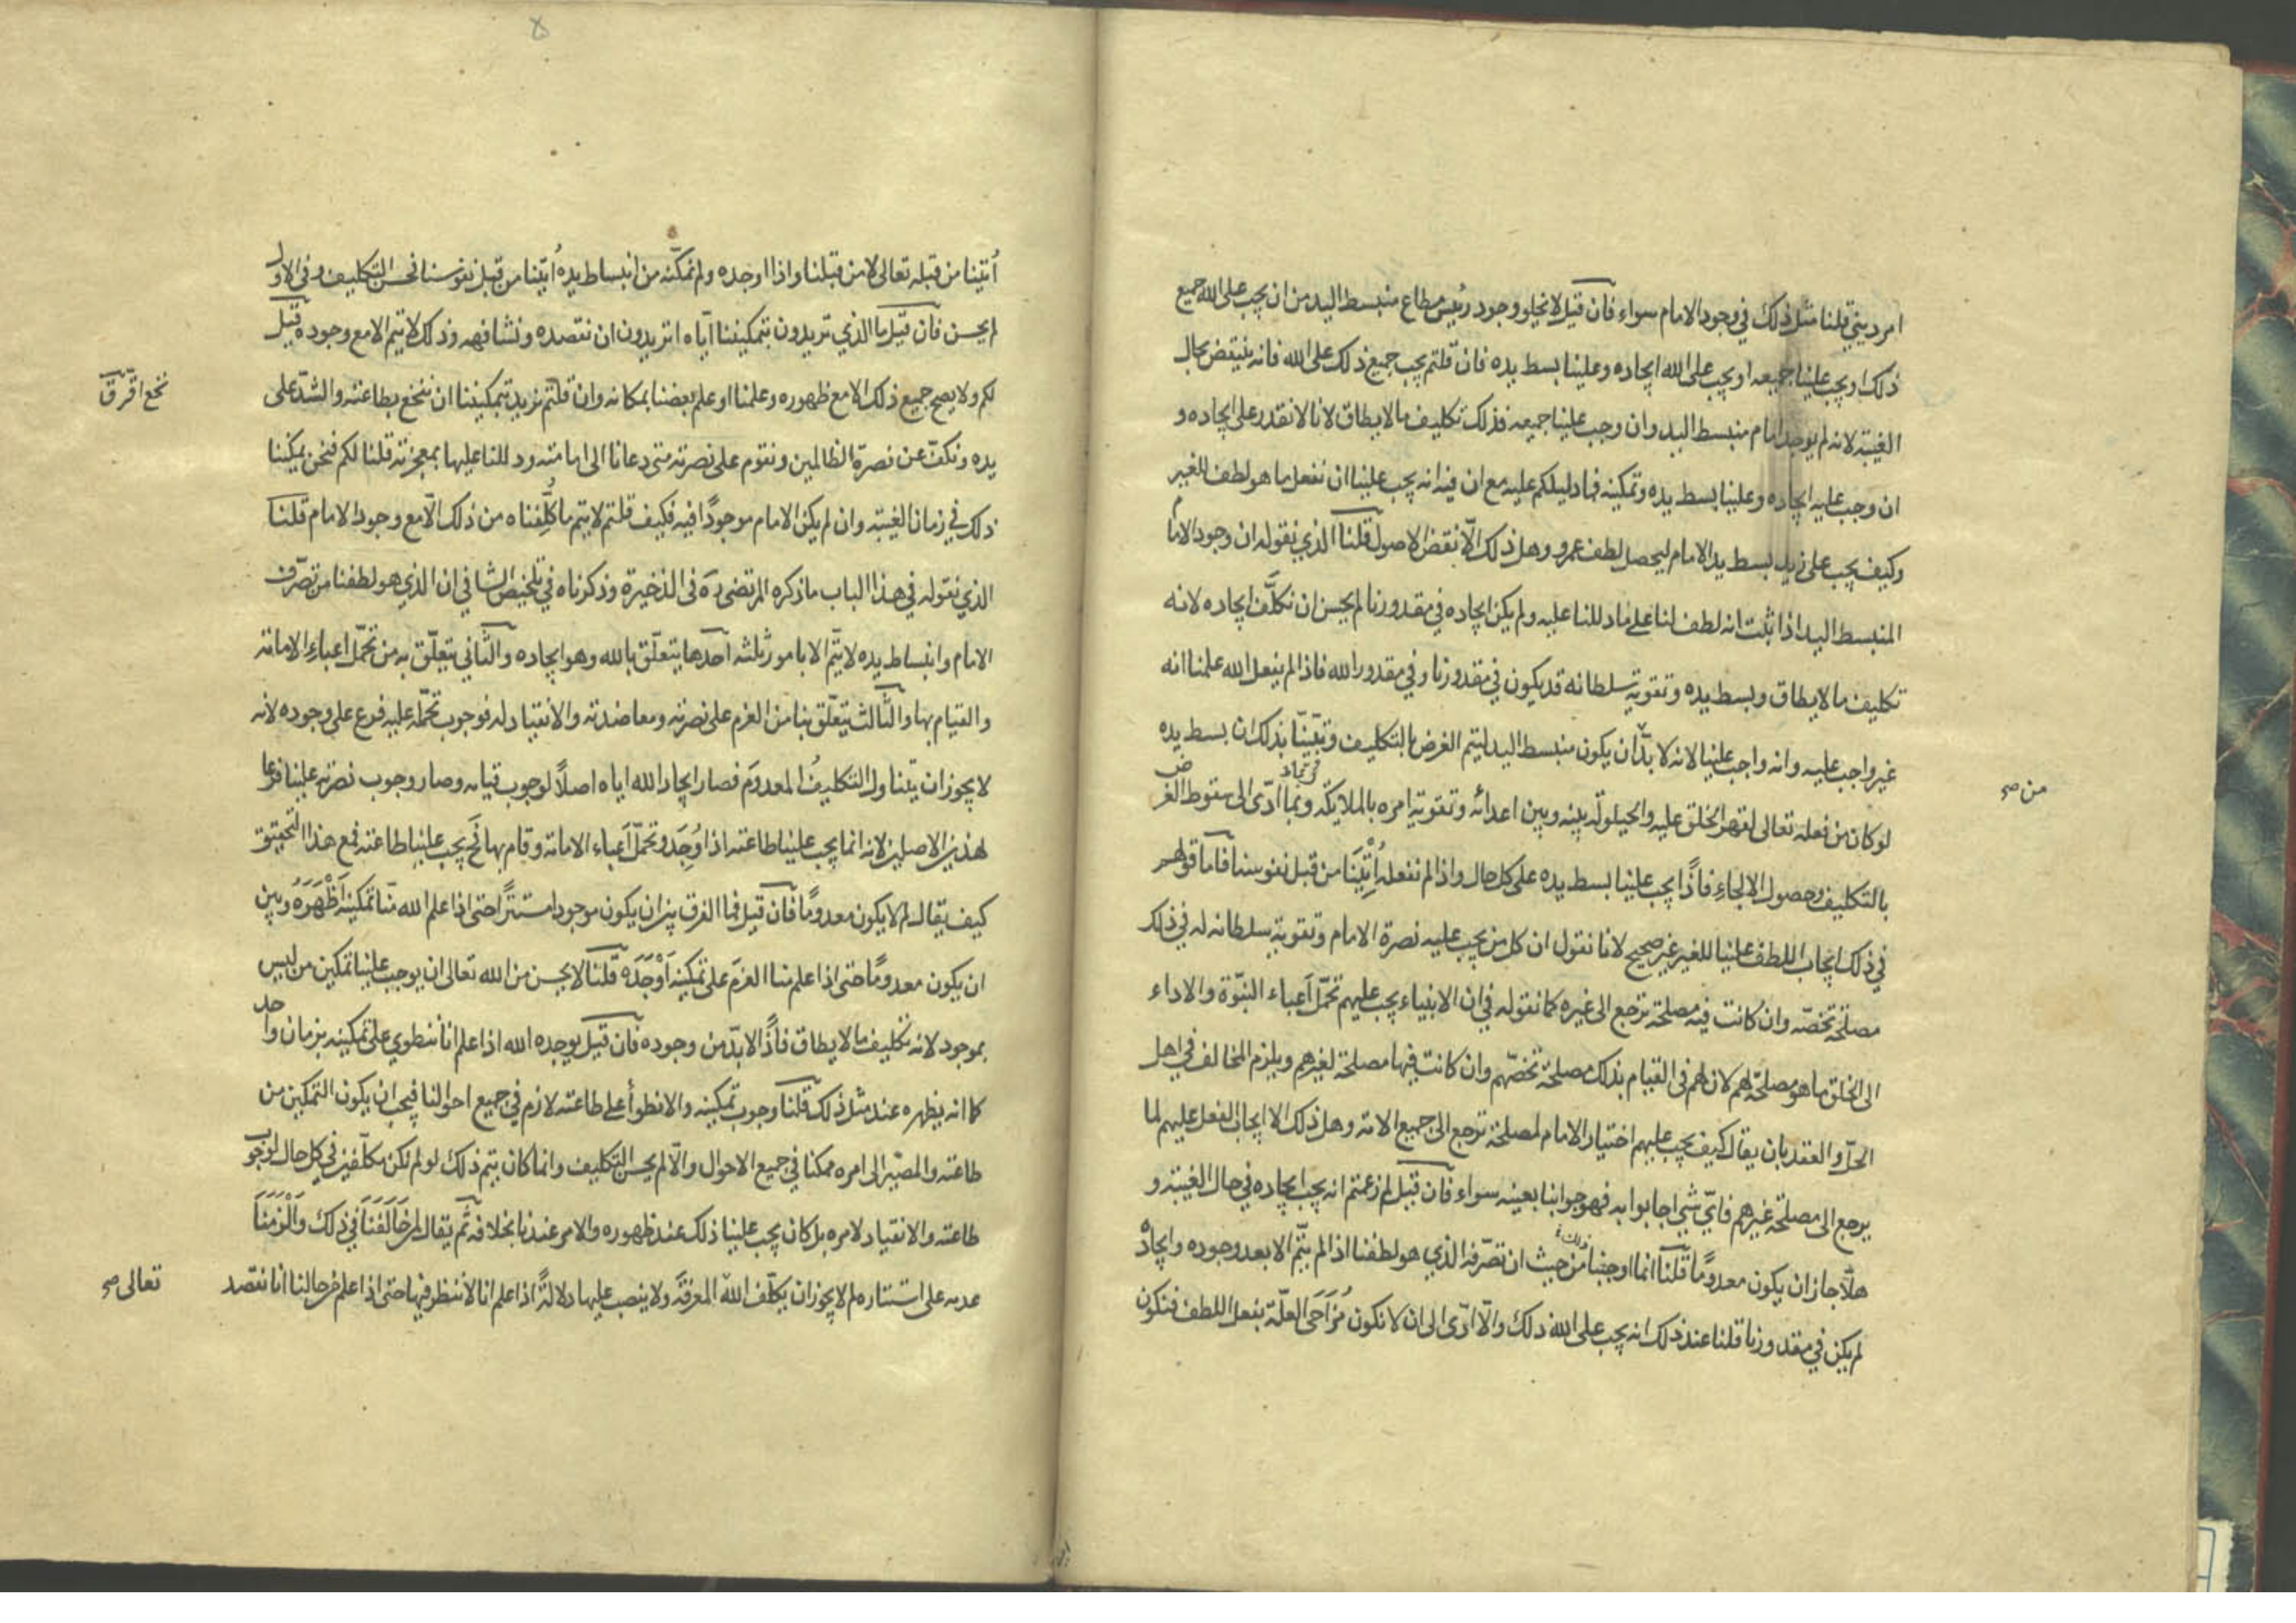 امر ديني قلنا مثل ذلك في وجود الامام سواء فان قيل لا يخلو وجود رئيس مطاع منبسط اليد من ان يجب على الله جميع
ذلك او يجب علينا جميعه او يجب على الله ايجاده وعلينا بسط يده فان قلتم يجب جميع ذلك على الله فانه ينتقض بحال
الغيبة لانه لم يوجد امام منبسط اليد وان وجب علينا جميعه فذلك تكليف ما لا يطاق لانا لا نقدر على ايجاده و
ان وجب عليه ايجاده وعلينا بسط يده وتمكينه فما دليلكم عليه مع ان فيه انه يجب علينا ان نفعل ما هو لطف للغير
وكيف يجب على زيد بسط يد الامام ليحصل لطف عمرو وهل ذلك الّا نقض الاصول قلنا الذي نقوله ان وجود الامام
المنبسط اليد اذا ثبت انه لطف لنا على ما دللنا عليه ولم يكن ايجاده في مقدورنا لم يحسن ان نكلَّف ايجاده لانه
تكليف ما لا يطاق وبسط يده وتقوية سلطانه قد يكون في مقدورنا وفي مقدور الله فاذا لم يفعل الله علمنا انه
غير واجب عليه وانه واجب علينا لانه لا بدّ ان يكون منبسط اليد ليتم الغرض بالتكليف وتبيّنّا بذلك ان بسط يده
من صح
لو كان من فعله تعالى لقهر الخلق عليه والحيلولة بينه وبين اعدائه وتقوية امره بالملايكة وبما ادّى الى سقوط الغرض
بالتكليف وحصول الالجاء فاذًا يجب علينا بسط يده على كل حال واذا لم نفعله اُتِينَا من قبل نفوسنا فاما قولهم
في ذلك ايجاب اللطف علينا للغير غير صحيح لانا نقول ان كل من يجب عليه نصرة الامام وتقوية سلطانه له في ذلك
مصلحة تخصّه وان كانت فيه مصلحة ترجع الى غيره كما نقوله في ان الانبياء يجب عليهم تحمّل اَعباء النبوّة والاداء
الى الخلق ما هو مصلحة لهم لان لهم في القيام بذلك مصلحة تخصّهم وان كانت فيها مصلحة لغيرهم ويلزم المخالف في اهل
الحلّ والعقد بان يقال كيف يجب عليهم اختيار الامام لمصلحة ترجع الى جميع الامة وهل ذلك الا ايجاب الفعل عليهم لما
يرجع الى مصلحة غيرهم فايّ شي اجابوا به فهو جوابنا بعينه سواء فان قيل لم زعمتم انه يجب ايجاده في حال الغيبة و
هلّا جاز ان يكون معدومًا قلنا انما اوجبنا من حيث ان تصرّفه الذي هو لطفنا اذا لم يتمّ الا بعد وجوده وايجاده
لم يكن في مقدورنا قلنا عند ذلك انه يجب على الله ذلك والّا ادّى الى ان لا نكون مُزَاحَى العلّة بفعل اللطف فنكون
اُتينا من قبله تعالى لا من قبلنا واذا اوجده ولم نمكّنه من انبساط يده اُتينا من قبل نفوسنا فحسن التكليف وفي الاول
لم يحسن فان قيل ما الذي تريدون بتمكيننا ايّاه اتريدون ان نقصده ونشافهه وذلك لا يتم الا مع وجوده قيل
لكم ولا يصح جميع ذلك الا مع ظهوره وعلمنا او علم بعضنا بمكانه وان قلتم نريد بتمكيننا ان نبخع بطاعته والشدّ على
يده ونكفّ عن نصرة الظالمين ونقوم على نصرته متى دعانا الى امامته ودللنا عليها بمعجزته قلنا لكم فنحن يمكننا
ذلك في زمان الغيبة وان لم يكن الامام موجودًا فيه فكيف قلتم لا يتم ما كُلِّفناه من ذلك الّا مع وجود الامام قلنا
الذي نقوله في هذا الباب ما ذكره المرتضى ره في الذخيرة وذكرناه في تلخيص الشافي ان الذي هو لطفنا من تصرّف
الامام وانبساط يده لا يتمّ الا بامور ثلثة احدها يتعلّق بالله وهو ايجاده والثّاني يتعلّق به من تحمّل اعباء الامامة
والقيام بها والثّالث يتعلّق بنا من العزم على نصرته ومعاضدته والانقياد له فوجوب تحمّله عليه فرع على وجوده لانه
لا يجوز ان يتناول التكليفُ المعدومَ فصار ايجاد الله اياه اصلًا لوجوب قيامه وصار وجوب نصرته علينا فرعا
لهذين الاصلين لانه انما يجب علينا طاعته اذا وُجِدَ وتحمّل اَعباء الامامة وقام بها فح يجب علينا طاعته فمع هذا التحقيق
كيف يقال لم لا يكون معدومًا فان قيل فما الفرق بين ان يكون موجودا مستترًا حتى اذا علم الله منّا تمكينه اَظْهَرَهُ وبين
ان يكون معدومًا حتى اذا علم منا العزمَ على تمكينه اَوْجَدَه قلنا لا يحسن من الله تعالى ان يوجب علينا تمكين من ليس
بموجود لانه تكليف ما لا يطاق فاذًا لا بدّ من وجوده فان قيل يوجده الله اذا علم انا ننطوي على تمكينه بزمان واحد
كما انه يظهره عند مثل ذلك قلنا وجوب تمكينه والانطوأ على طاعته لازم في جميع احوالنا فيجب ان يكون التمكين من
طاعته والمصير الى امره ممكنا في جميع الاحوال والّا لم يحسن التكليف وانما كان يتم ذلك لو لم نكن مكلّفين في كل حال لوجوب
طاعته والانقياد لامره بل كان يجب علينا ذلك عند ظهوره والامر عندنا بخلافه ثم يقال لمن خَالَفَنَا في ذلك وَاَلْزَمَنَا
عدمه على استتاره لم لا يجوز ان يكلّف الله المعرفَةَ ولا ينصب عليها دلالةً اذا علم انا لا ننظر فيها حتى اذا علم من حالنا انا نقصد
تعالى صح